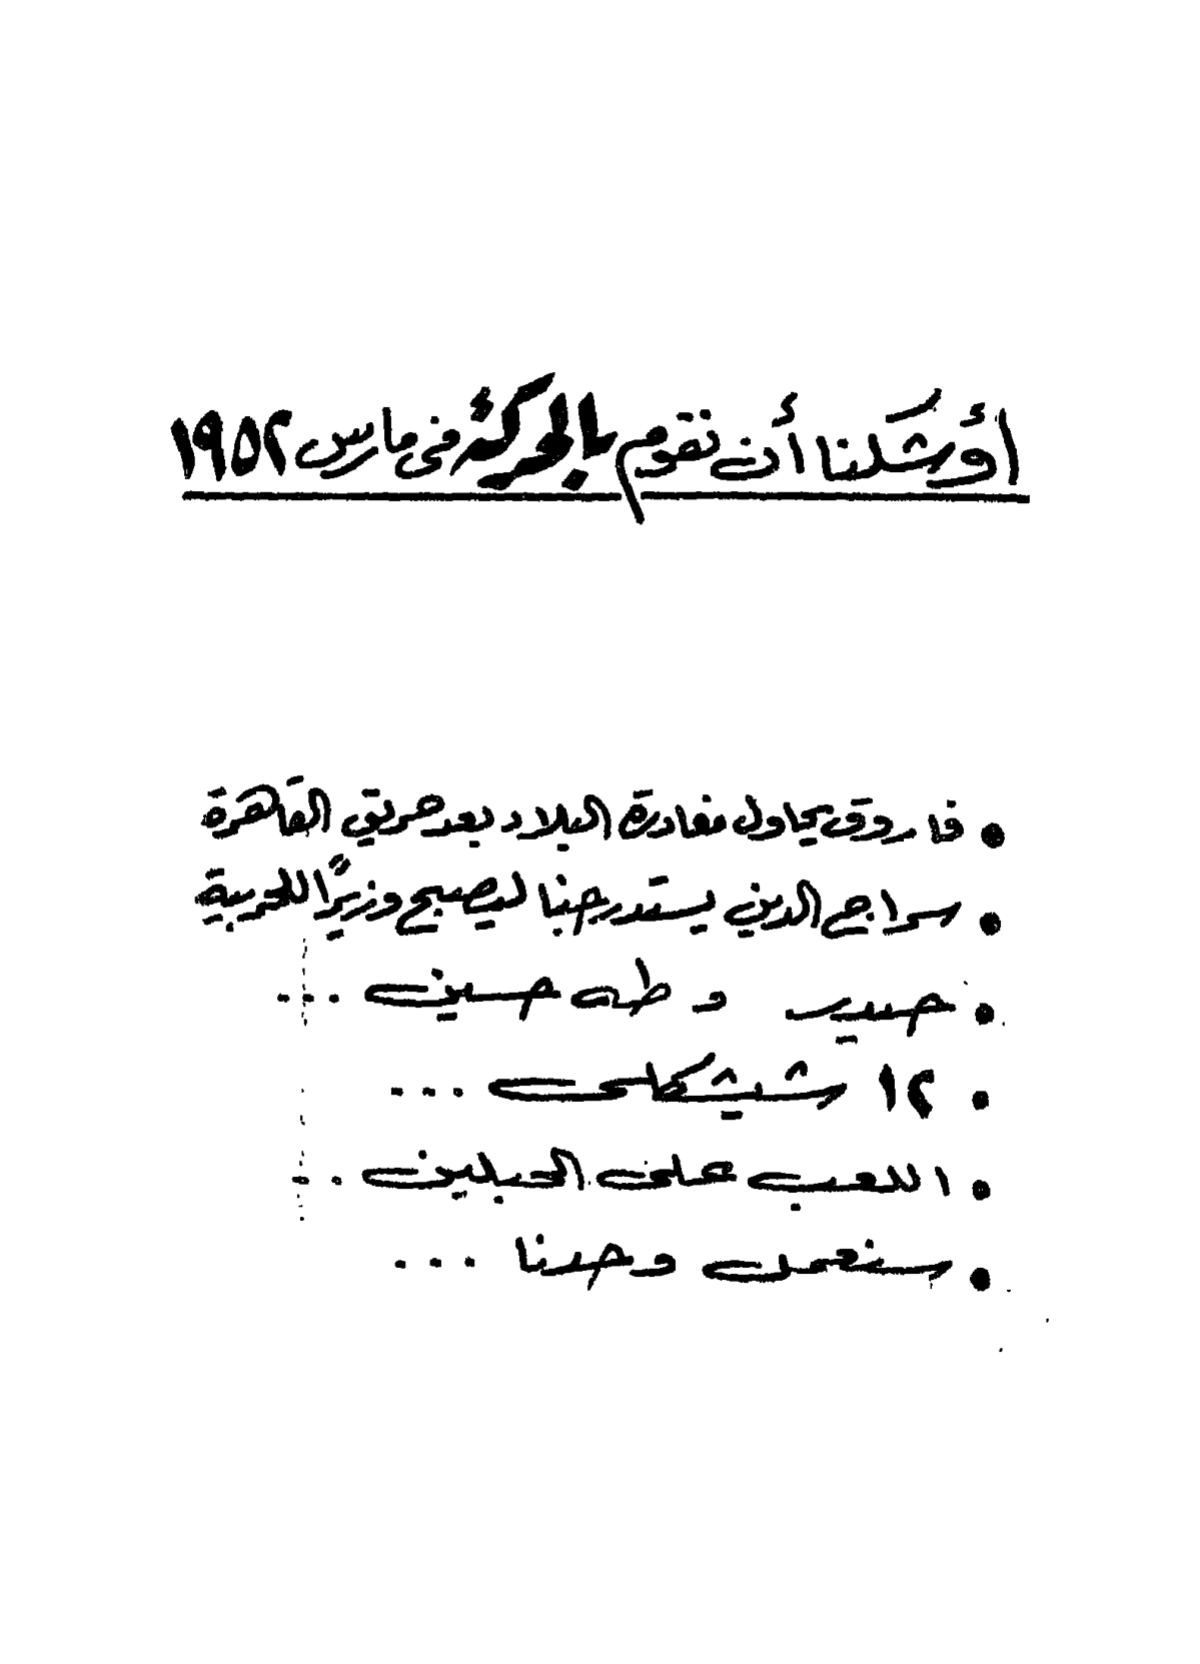 أوشكنا أن نقوم بالحركة فى مارس ١٩٥٢
• فاروق يحاول مغادرة البلاد بعد حريق القاهرة
• سراج الدين يستدرجنا ليصبح وزيرًا للحربية
• حيدر وطه حسين ...
• ١٢ شيشكلى ...
• اللعب على الحبلين ..
• سنعمل وحدنا ...